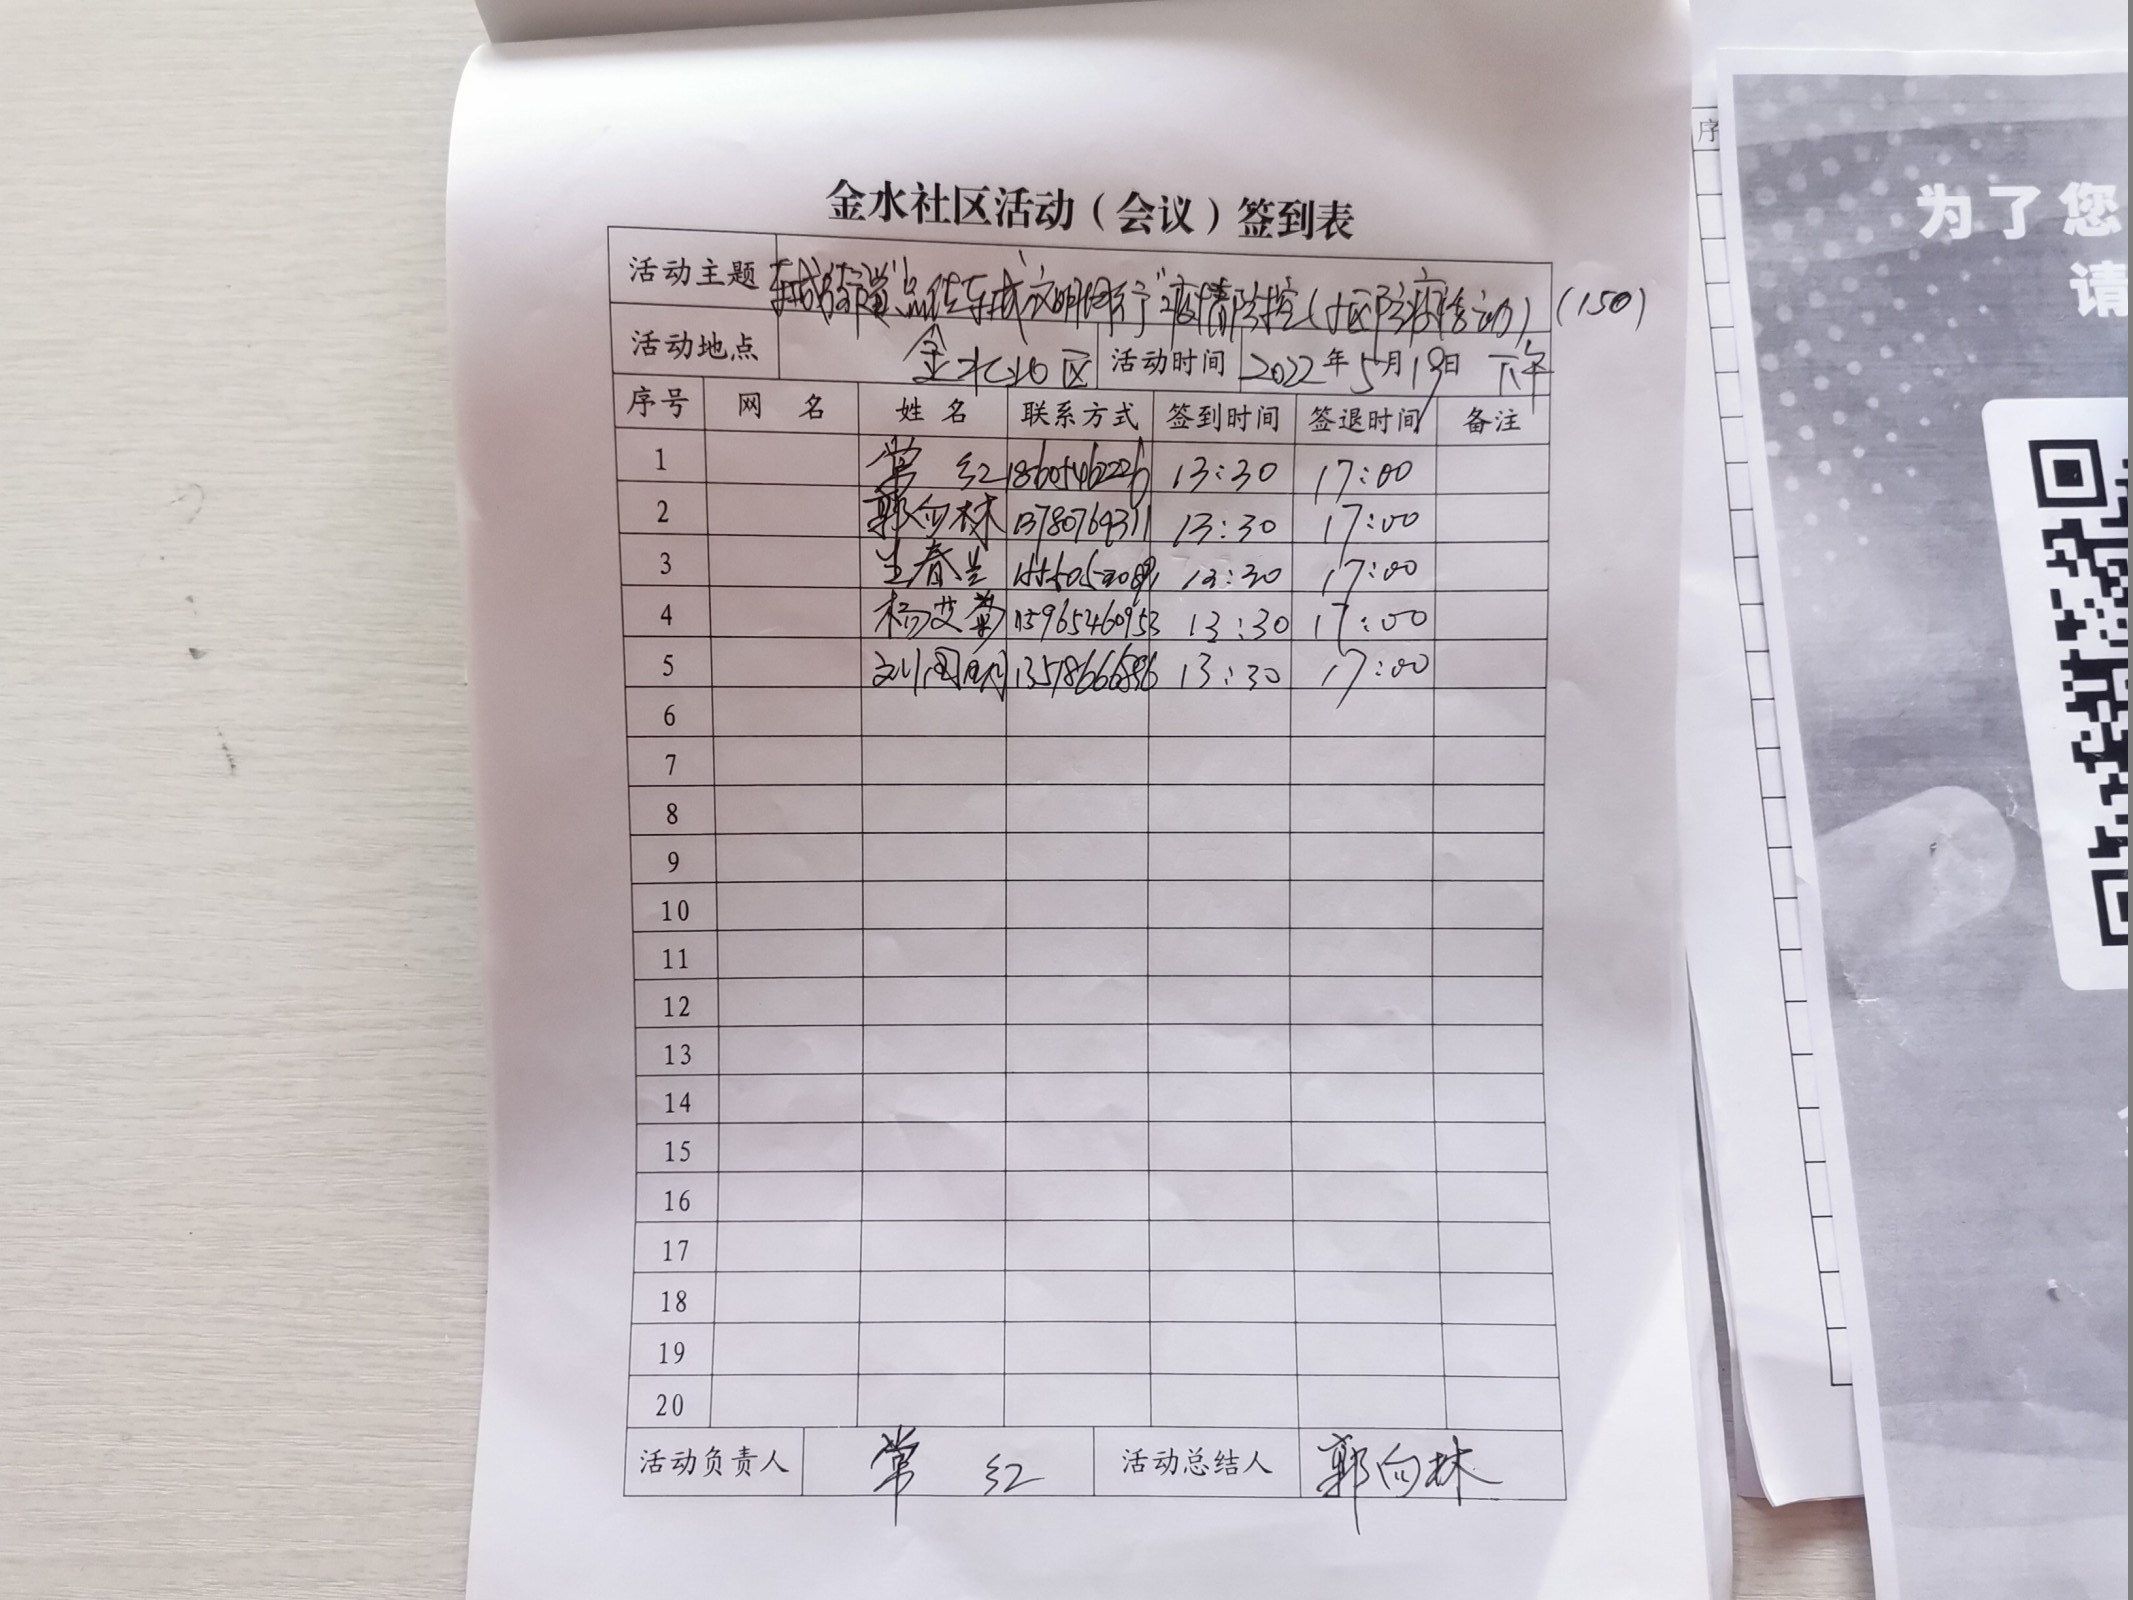 金水社区活动（会议）签到表
活动主题 东城街道"点亮东城 文明同行"疫情防控（社区防疫活动）（150）
活动地点 金水社区 活动时间 2022年5月19日 下午
序号 网 名 姓 名 联系方式 签到时间 签退时间 备注
1 常 红 18605462226 13:30 17:00
2 郭向林 13:30 17:00
3 13:30 17:00
4 杨艾菊 15965460953 13:30 17:00
5 13:30 17:00
6
7
8
9
10
11
12
13
14
15
16
17
18
19
20
活动负责人 常 红 活动总结人 郭向林
序
为了您
请